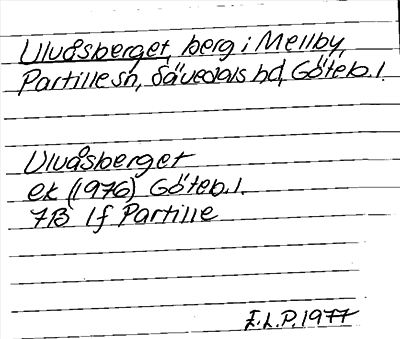 Ulvåsberget, berg i Mellby,
Partille sn, Sävedals hd, Göteb. l.
Ulvåsberget
ek (1976) Göteb. l.
7B 1f Partille
E.L.P. 1977